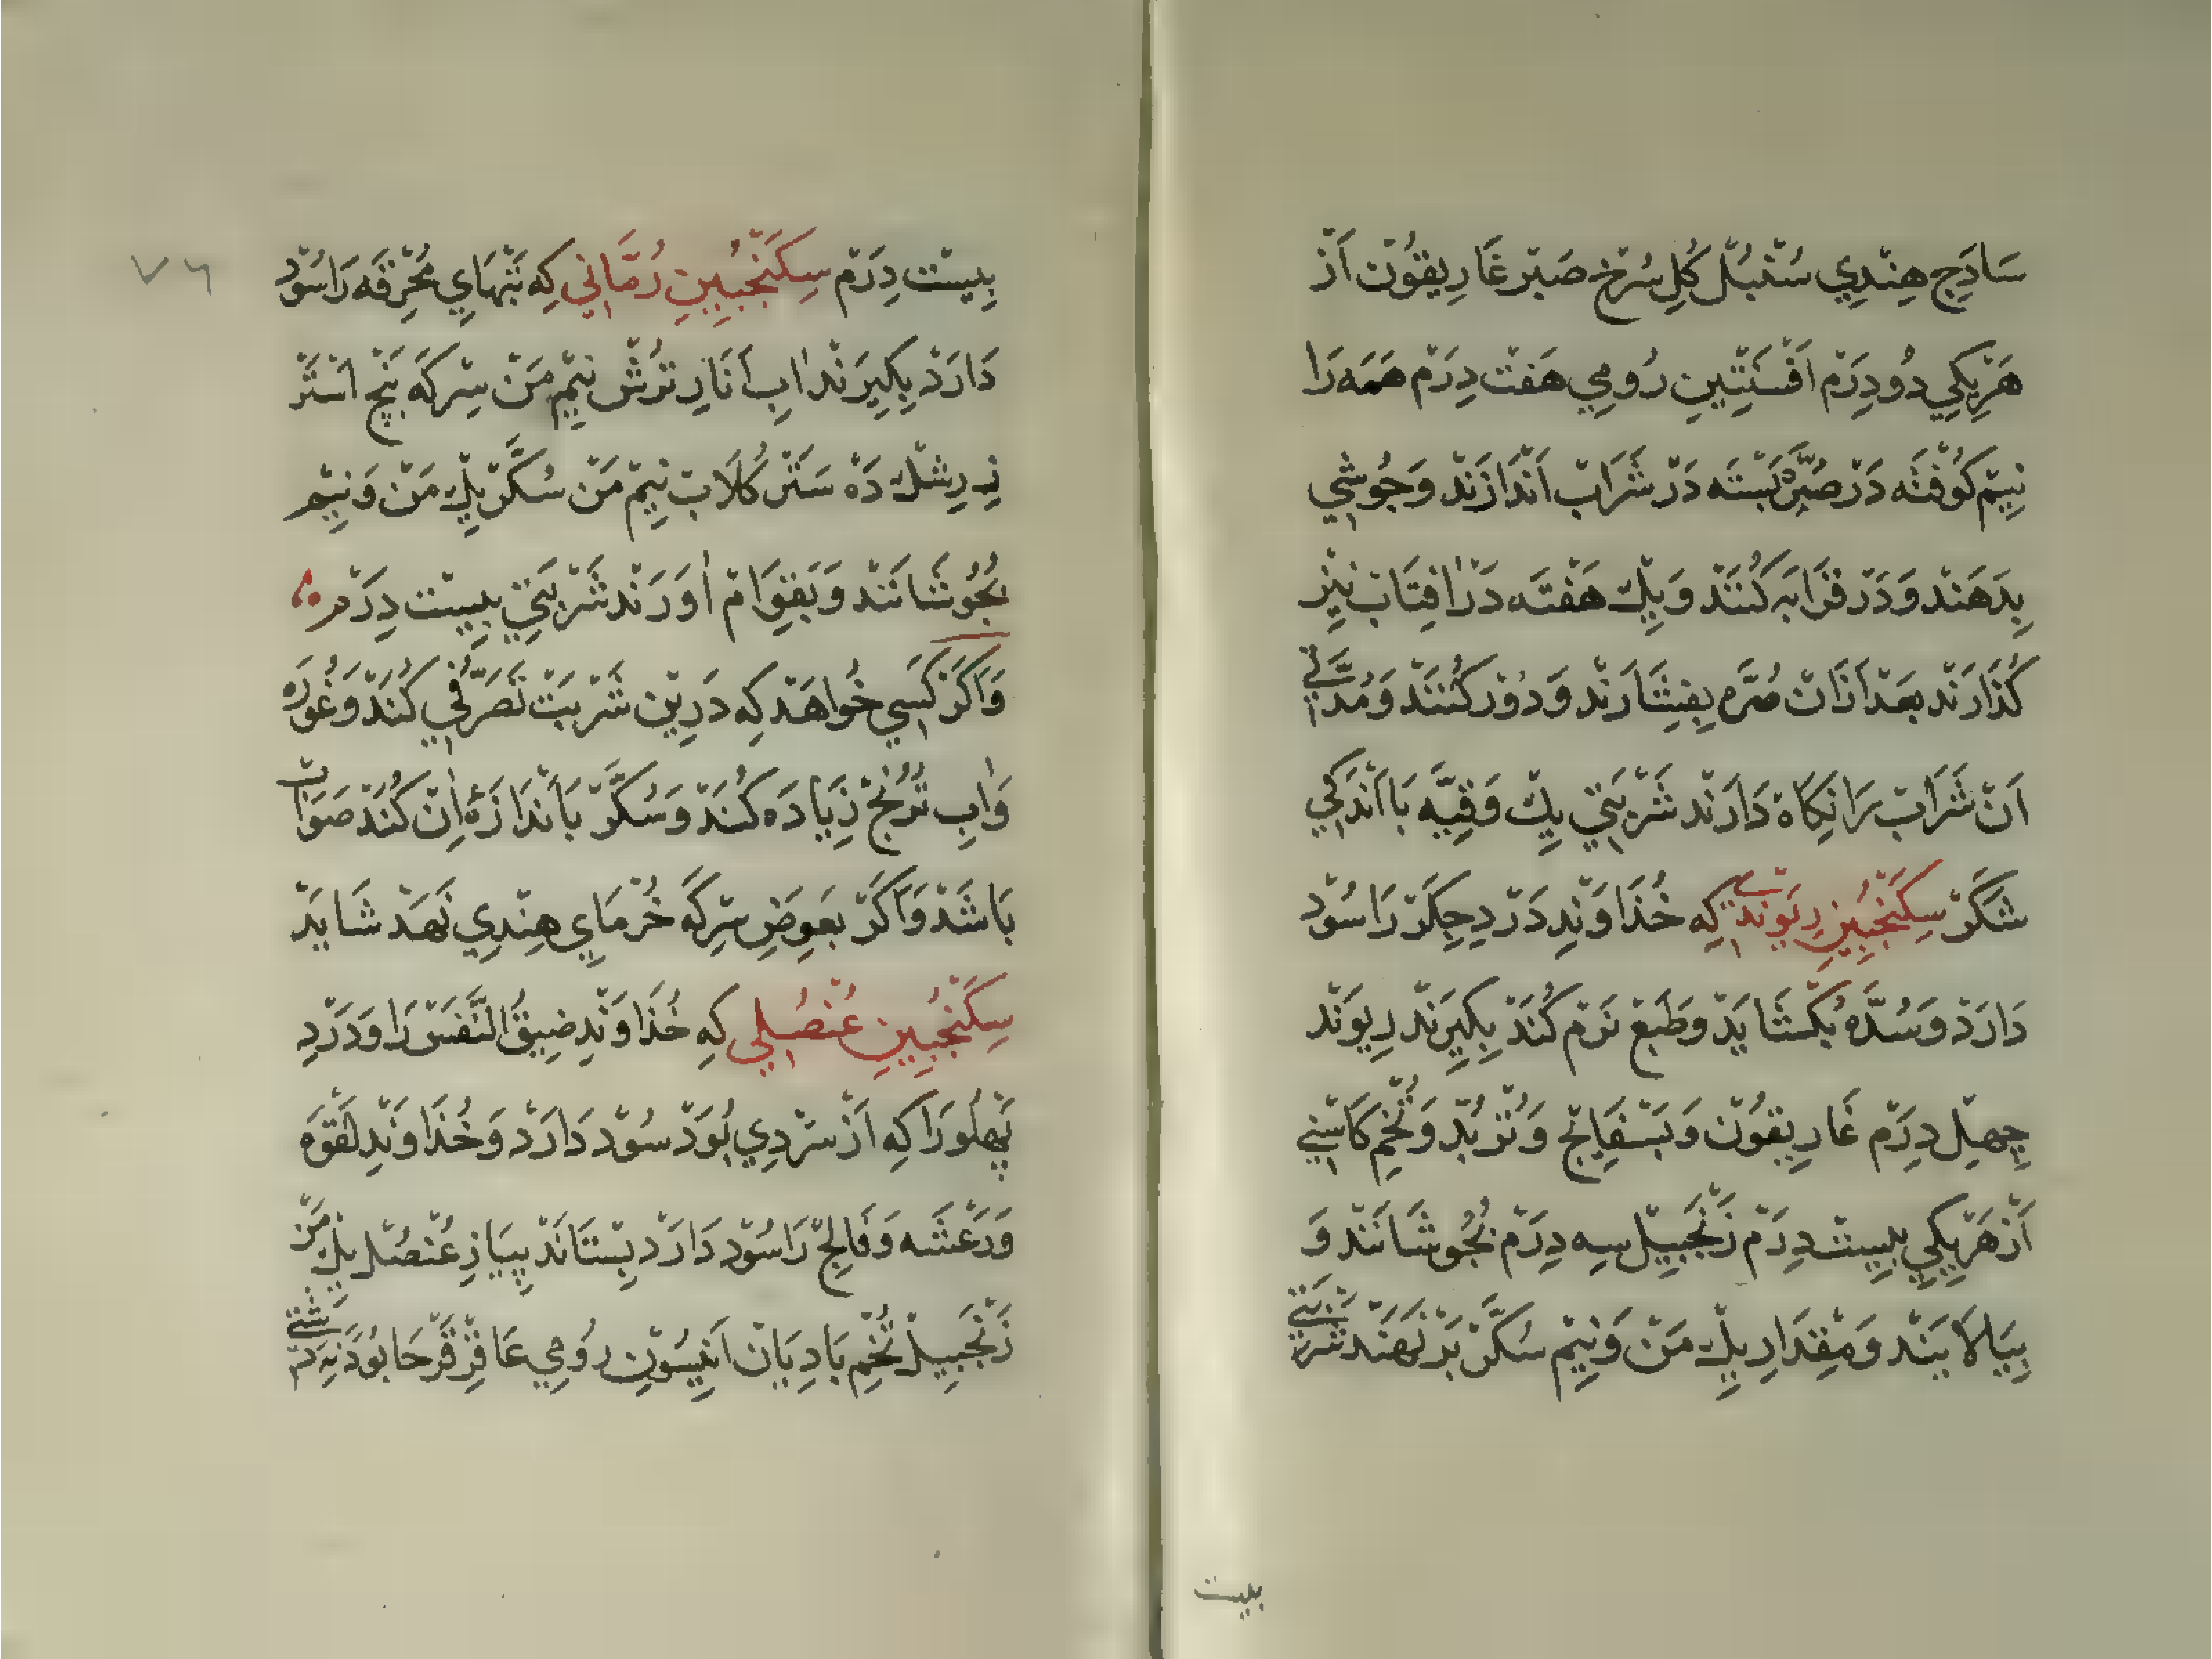 سَادَجِ هِنْدِي سُنْبُلْ كُلِ سُرْخ صَبْر غَارِيقُوْن اَزْ
هَرْيِكِي دُو دِرَمْ اَفْسَنْتِينِ رُومِي هَفْت دِرَمْ هَمَه رَا
نِيْم كُوْفْتَه دَرْ صُرَّهْ بَسْتَه دَرْ شَرَابْ اَنْدَازَنْد وَجُوشِي
بِدَهَنْد وَدَرْ قَرَابَه كُنَنْد وَيِكْ هَفْتَه دَرْ اٰفِتَابْ نِيْز
كُذَارَنْد بَعْد اَزَانْ صُرَّه بِفِشَارَنْد وَدُوْر كُنَنْد وَمُدَّتِي
اَنْ شَرَابْ رَا نِكَاهْ دَارَنْد شَرْبَتِي يِكْ وَقِيَّه بَا اَنْدَكِي
شَكَرْ سِكَنْجُبِينِ رِيوَنْدِي كِه خُذَاوَنْدِ دَرْدِ جِكَرْ رَا سُوْد
دَارَدْ وَسُدَّه بُكْشَايَدْ وَطَبْع نَرْم كُنَدْ بِكِيرَنْد رِيوَنْد
چِهِلْ دِرَمْ غَارِيقُوْن وَبَسْفَايَجْ وَتُرْبُدْ وَتُخْمِ كَاسْنِي
اَزْ هَرْيِكِي بِيسْت دِرَمْ زَنْجَبِيلْ سِه دِرَمْ بُجُوشَانَنْد وَ
بِپَالَايَنْد وَمِقْدَارِ يِكْ مَنْ وَنِيْم سُكَّرْ بَرْ نَهَنْد شَرْبَتِي
بيست
٧٦
بِيسْت دِرَمْ سِكَنْجُبِينِ رُمَّانِي كِه تَبْهَايِ مُحْرِقَه رَا سُوْد
دَارَدْ بِكِيرَنْد اٰبِ اَنَارِ تُرْش نِيْم مَنْ سِرْكَه پَنْج اسْتَرْ
زِرِشْك دَهْ سَتَرْ كُلَابْ نِيْم مَنْ سُكَّرْ يِكْ مَنْ وَنِيْم
بُجُوشَانَنْد وَبَقِوَامْ اٰوَرَنْد شَرْبَتِي بِيسْت دِرَمْ
وَاَكَرْ كَسِي خُوَاهَد كِه دَرِيْن شَرْبَتْ تَصَرُّفِي كُنَدْ وَغُورَه
وَاٰبِ تُرُنْجْ زِيَادَه كُنَدْ وَسُكَّرْ بَاَنْدَازَهٔ اٰنْ كُنَدْ صَوَابْ
بَاشَدْ وَاَكَرْ بَعِوَضِ سِرْكَه خُرْمَايِ هِنْدِي نَهَدْ شَايَدْ
سِكَنْجُبِينِ عُنْصُلِي كِه خُذَاوَنْدِ ضِيقُ النَّفَسْ رَا وَدَرْدِ
پَهْلُو رَا كِه اَزْ سَرْدِي بُوَدْ سُوْد دَارَدْ وَخُذَاوَنْدِ لَقْوَه
وَرَعْشَه وَفَالِجْ رَا سُوْد دَارَدْ بِسْتَانَنْد پِيَازِ عُنْصُلْ يِكْ مَنْ
زَنْجَبِيلْ تُخْمِ بَادِيَانْ اَنِيسُوْنِ رُومِي عَاقِرْقَرْحَا پُوْدَنَه دَشْتِي